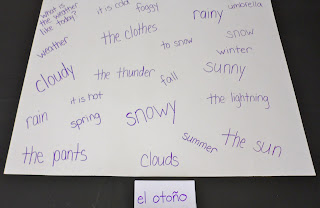 what is
the weather
like today?
it is cold
foggy
rainy
umbrella
weather
the clothes
to snow
snow
winter
cloudy
the thunder
fall
sunny
it is hot
the lightning
rain
spring
snowy
summer
the sun
the pants
clouds
el otoño